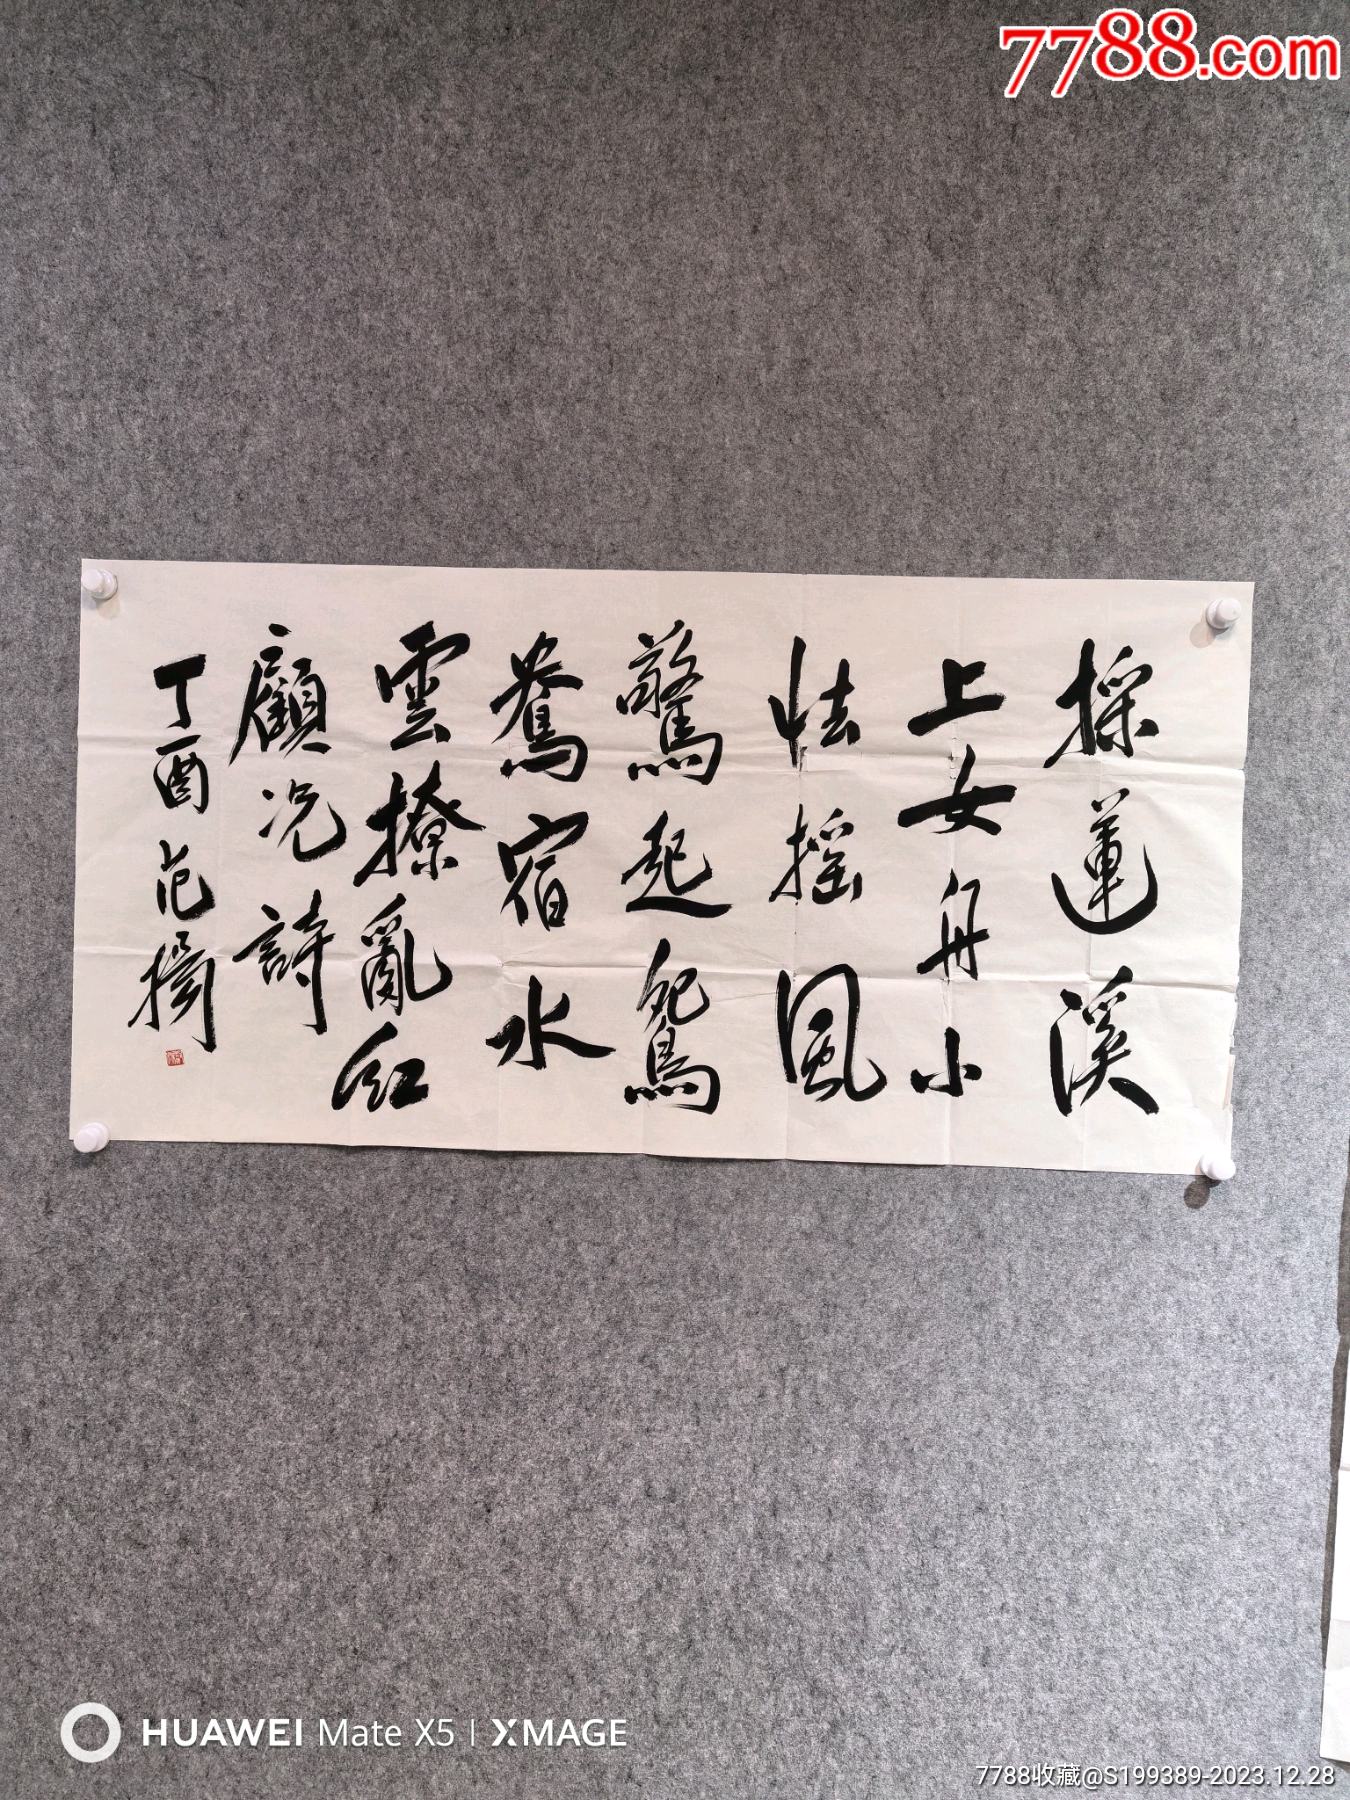 7788.com
採蓮溪
上女舟小
怯摇風
驚起鴛
鴦宿水
雲撩亂紅
顧况詩
丁酉 范
HUAWEI Mate X5 | XMAGE
7788收藏@S199389-2023.12.28